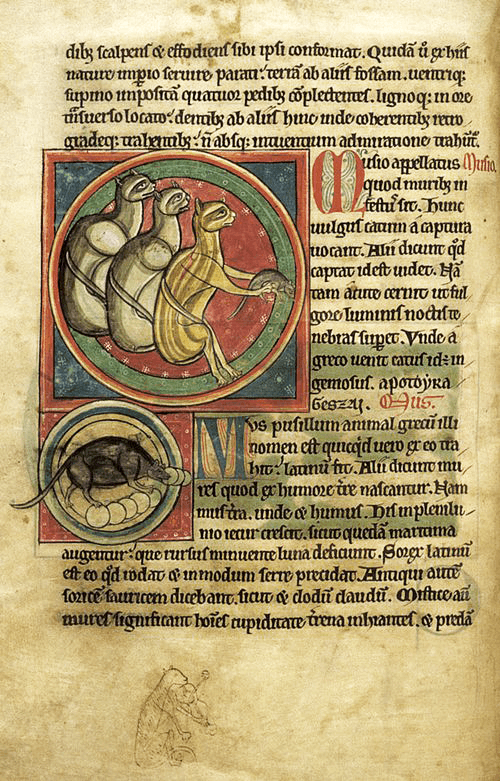 dibꝫ scalpens & effodiens sibi ipsi conformat. Quidā ū ex hiis
nature imꝑio seruire parati. terrā ab aliis fossam. uentriqꝫ
supino impositā quatuor pedibꝫ cōplectentes. lignoqꝫ in ore
trāsuerso locato. dentibꝫ ab aliis hinc inde coherentibꝫ retro
gradeqꝫ trahentibꝫ. ñ absqꝫ intuentium admiratione trahūt.
Musio appellatus Musio.
quod muribꝫ in
festus sit. Hunc
uulgus catum a captura
uocant. Alii dicunt qd
captat id est uidet. Nā
tam acute cernit ut ful
gore luminis noctis te
nebras suꝑet. Vnde a
greco uenit catus id ÷ in
geniosus. apotoyra
geszai. Mus.
Mus pusillum animal grecū illi
nomen est quicqd uero ex eo tra
hit. latinū fit. Alii dicunt mu
res quod ex humore tre nascantur. Nam
mus tra. unde & humus. His in plenilu
nio iecur crescit. sicut quedā maritima
augentur. que rursus minuente luna deficiunt. Sorex latinū
est eo qd rodat & in modum serre precidat. Antiqui autē
soricē sauricem dicebant. sicut & clodū claudū. Mistice aū
mures significant hoīes cupiditate trena inhiantes. & predā